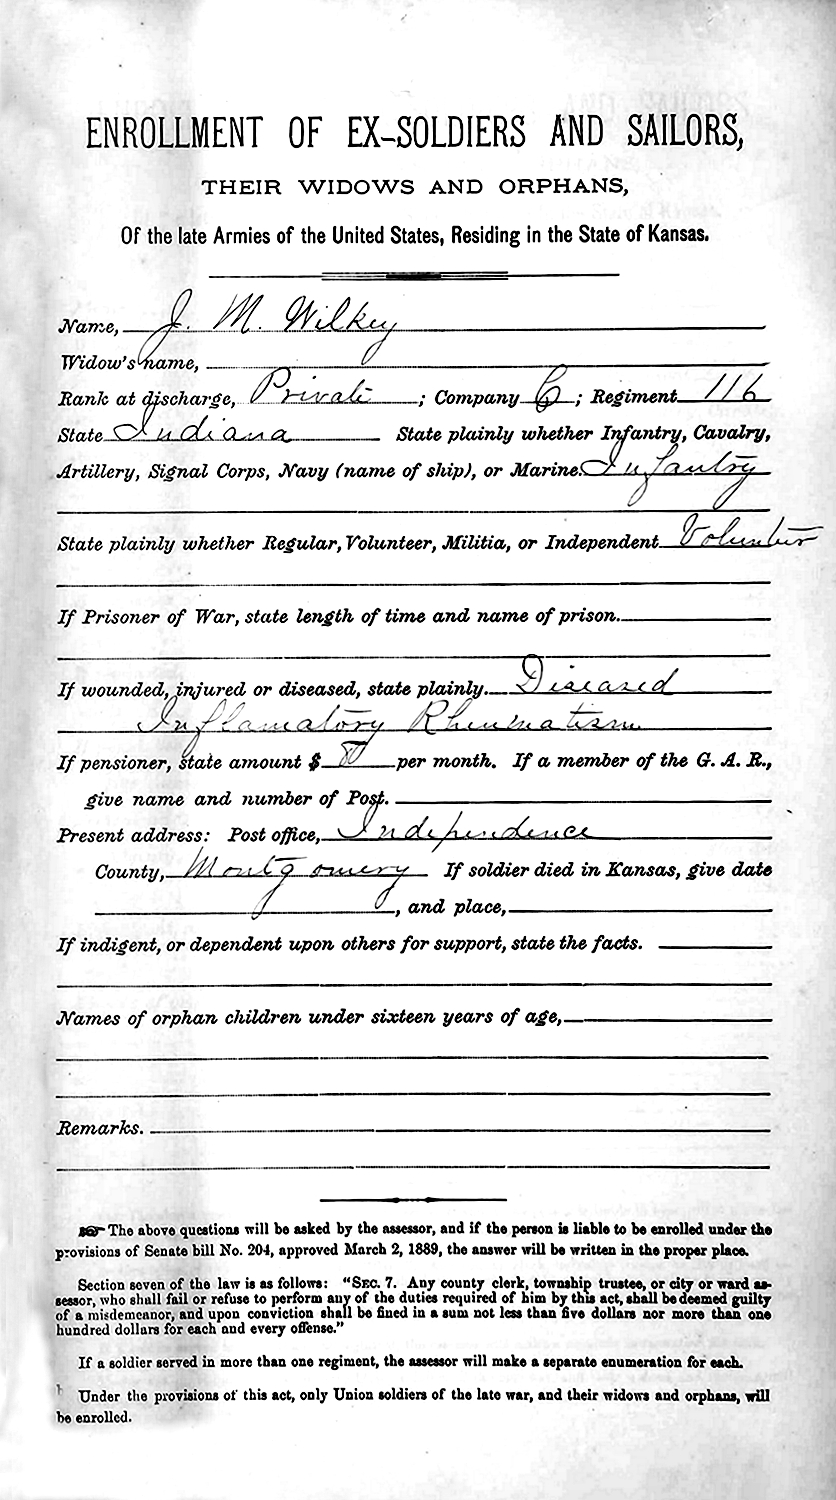 ENROLLMENT OF EX-SOLDIERS AND SAILORS,
THEIR WIDOWS AND ORPHANS,
Of the late Armies of the United States, Residing in the State of Kansas.
Name, J. M. Wilkey
Widow's name,
Rank at discharge, Private ; Company C ; Regiment 116
State Indiana State plainly whether Infantry, Cavalry,
Artillery, Signal Corps, Navy (name of ship), or Marine. Infantry
State plainly whether Regular, Volunteer, Militia, or Independent Volunter
If Prisoner of War, state length of time and name of prison.
If wounded, injured or diseased, state plainly. Diseased
Inflamatory Rheumatism
If pensioner, state amount $ per month. If a member of the G. A. R.,
give name and number of Post.
Present address: Post office, Independence
County, Montgomery If soldier died in Kansas, give date
, and place,
If indigent, or dependent upon others for support, state the facts.
Names of orphan children under sixteen years of age,
Remarks.
☞ The above questions will be asked by the assessor, and if the person is liable to be enrolled under the
provisions of Senate bill No. 204, approved March 2, 1889, the answer will be written in the proper place.
Section seven of the law is as follows: "SEC. 7. Any county clerk, township trustee, or city or ward as-
sessor, who shall fail or refuse to perform any of the duties required of him by this act, shall be deemed guilty
of a misdemeanor, and upon conviction shall be fined in a sum not less than five dollars nor more than one
hundred dollars for each and every offense."
If a soldier served in more than one regiment, the assessor will make a separate enumeration for each.
Under the provisions of this act, only Union soldiers of the late war, and their widows and orphans, will
be enrolled.